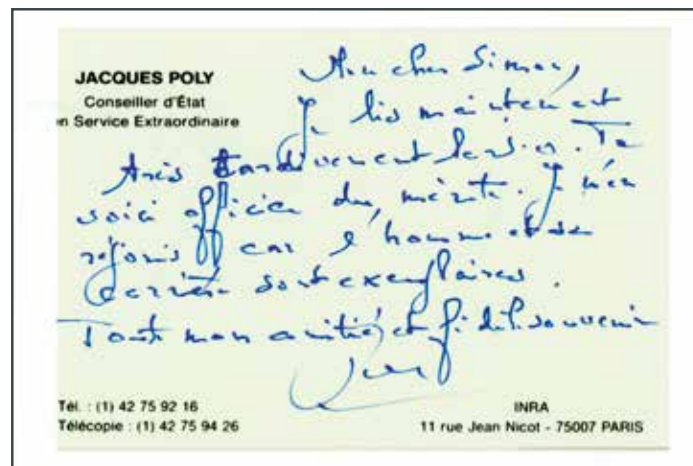 JACQUES POLY
Conseiller d'État
n Service Extraordinaire
Mon cher Simon,
Je lis maintenant
très tardivement . Te
voici officier du mérite. Je m'en
réjouis car l'homme et sa
carrière sont exemplaires.
Toute mon amitié et fidèle souvenir
Tél. : (1) 42 75 92 16
Télécopie : (1) 42 75 94 26
INRA
11 rue Jean Nicot - 75007 PARIS